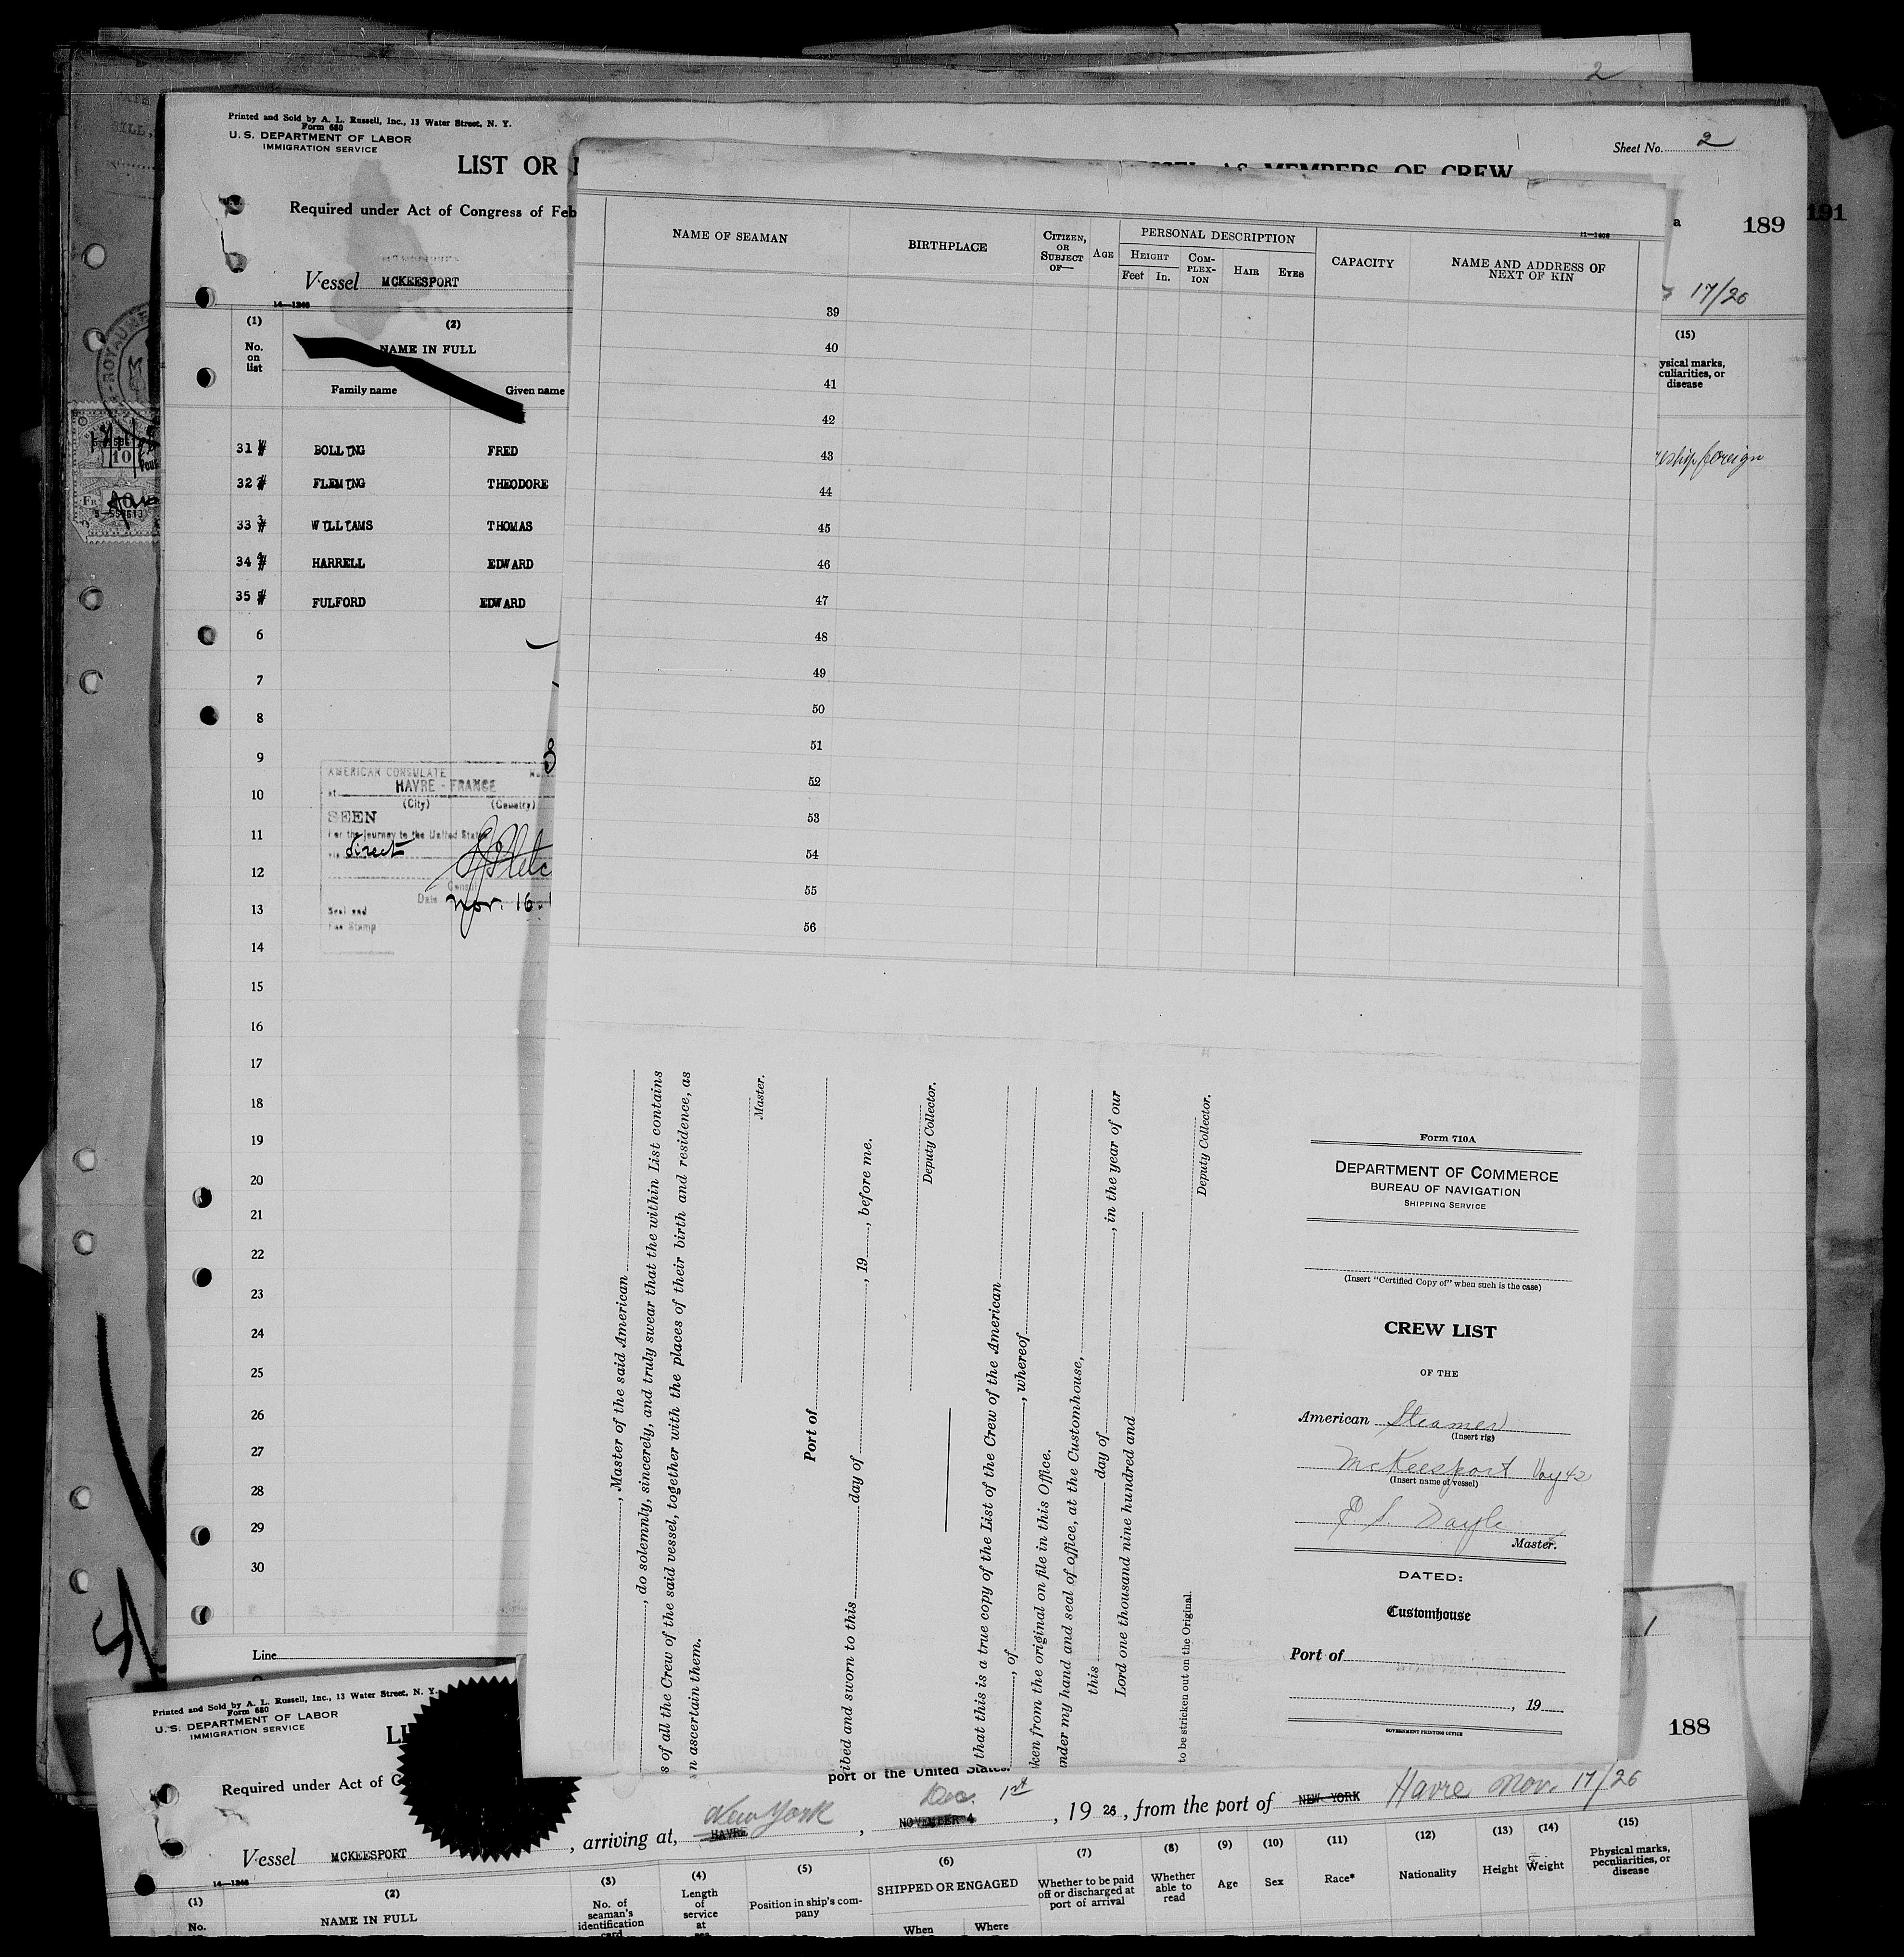 2
Printed and Sold by A. L. Russell, Inc., 13 Water Street, N. Y.
Form 680
U. S. DEPARTMENT OF LABOR
IMMIGRATION SERVICE
Sheet No. 2
LIST OR
AS MEMBERS OF CREW
Required under Act of Congress of Feb
189
191
Vessel MCKEESPORT
17/26
14—1246
(1)
(2)
(15)
No.
on
list
NAME IN FULL
ysical marks,
culiarities, or
disease
Family name
Given name
31 BOLLING FRED
reship foreign
32 FLEMING THEODORE
33 WILLIAMS THOMAS
34 HARRELL EDWARD
35 FULFORD EDWARD
6
7
8
9
10
11
12
13
14
15
16
17
18
19
20
21
22
23
24
25
26
27
28
29
30
Line
AMERICAN CONSULATE
at HAVRE - FRANCE
(City) (Country)
SEEN
For the journey to the United States
direct
Consul
Date Nov. 16
Seal and
Fee Stamp
11—1406
NAME OF SEAMAN
BIRTHPLACE
CITIZEN,
OR
SUBJECT
OF—
AGE
PERSONAL DESCRIPTION
HEIGHT
Feet In.
COM-
PLEX-
ION
HAIR
EYES
CAPACITY
NAME AND ADDRESS OF
NEXT OF KIN
39
40
41
42
43
44
45
46
47
48
49
50
51
52
53
54
55
56
, Master of the said American
, do solemnly, sincerely, and truly swear that the within List contains
s of all the Crew of the said vessel, together with the places of their birth and residence, as
n ascertain them.
Master.
Port of
ibed and sworn to this day of , 19 , before me.
Deputy Collector.
that this is a true copy of the List of the Crew of the American
, of , whereof
ken from the original on file in this Office.
nder my hand and seal of office, at the Customhouse,
this day of , in the year of our
Lord one thousand nine hundred and
Deputy Collector.
to be stricken out on the Original.
Form 710A
DEPARTMENT OF COMMERCE
BUREAU OF NAVIGATION
SHIPPING SERVICE
(Insert "Certified Copy of" when such is the case)
CREW LIST
OF THE
American Steamer
(Insert rig)
McKeesport Voy 42
(Insert name of vessel)
Master.
DATED:
Customhouse
Port of
, 19
GOVERNMENT PRINTING OFFICE
1
Printed and Sold by A. L. Russell, Inc., 13 Water Street, N. Y.
Form 680
U. S. DEPARTMENT OF LABOR
IMMIGRATION SERVICE
188
LI
Required under Act of C
port of the United States.
Vessel MCKEESPORT , arriving at, HAVRE New York , NOVEMBER 4 Dec. 1st , 19 26 , from the port of NEW YORK Havre Nov. 17/26
14—1246
(1)
No.
(2)
NAME IN FULL
(3)
No. of
seaman's
identification
card
(4)
Length
of
service
at
sea
(5)
Position in ship's com-
pany
(6)
SHIPPED OR ENGAGED
When Where
(7)
Whether to be paid
off or discharged at
port of arrival
(8)
Whether
able to
read
(9)
Age
(10)
Sex
(11)
Race*
(12)
Nationality
(13)
Height
(14)
Weight
(15)
Physical marks,
peculiarities, or
disease